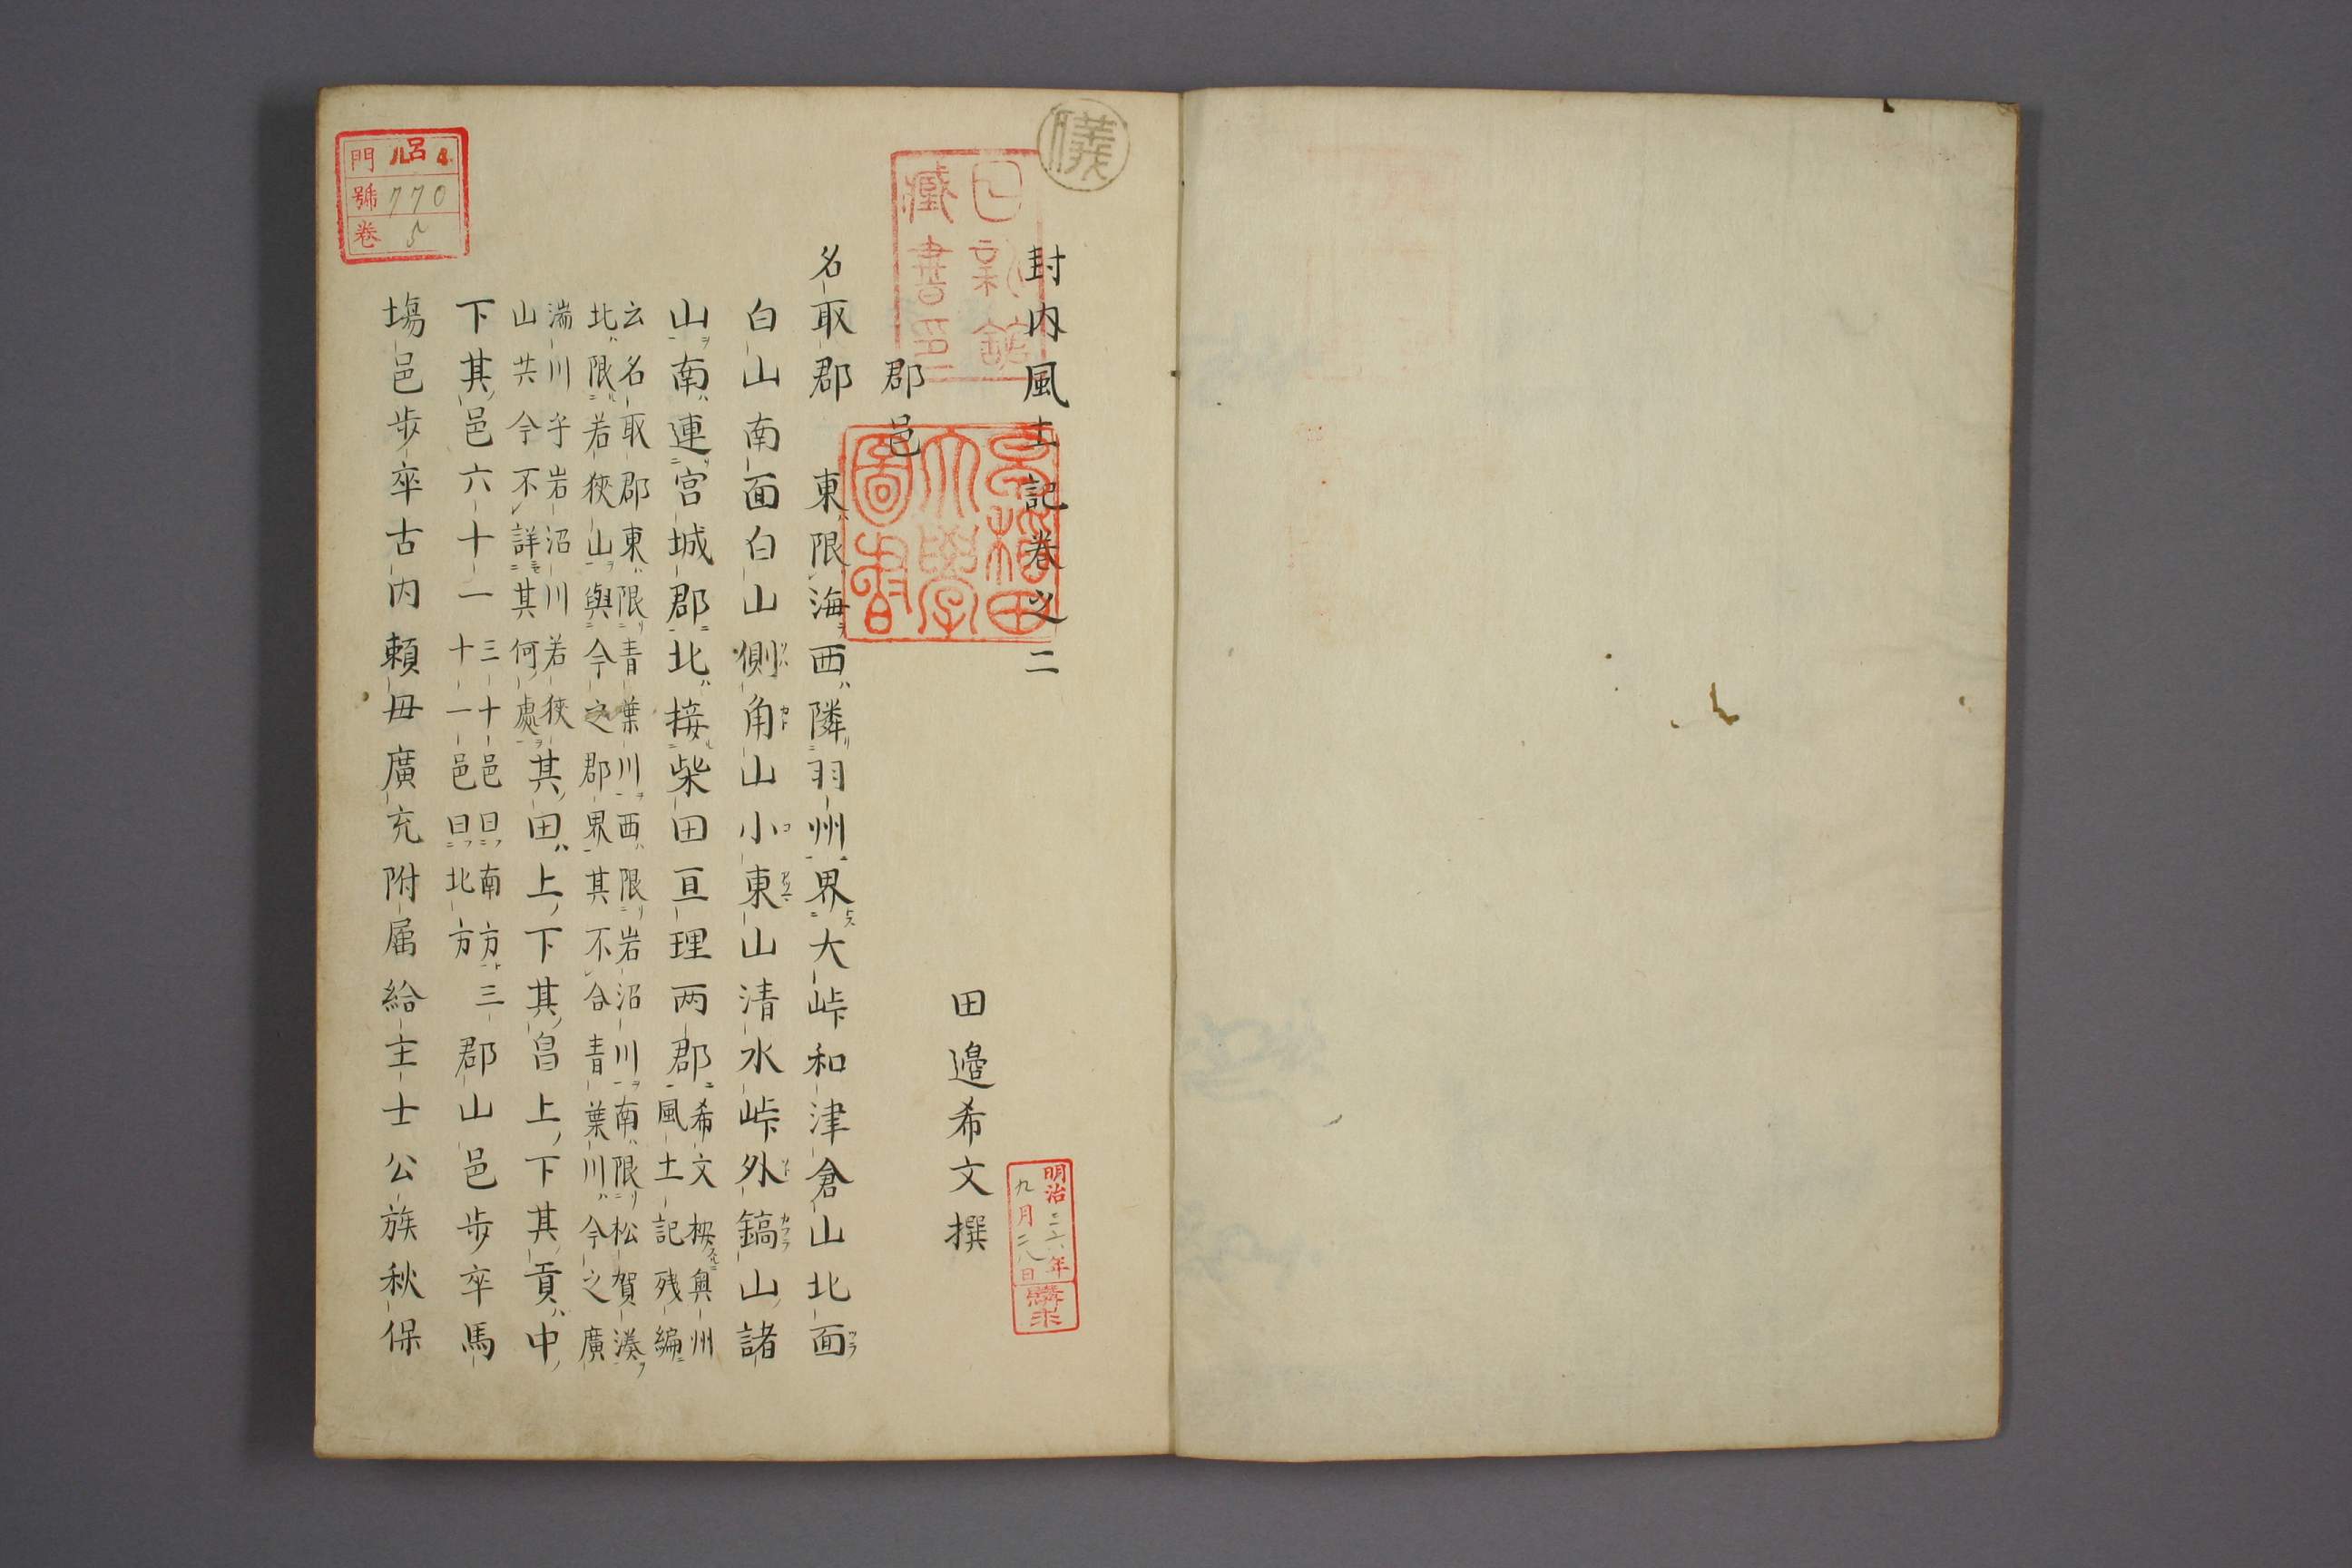 封内風土記卷之二
田邉希文撰
郡邑
名取郡 東限海西隣羽州界大峠和津倉山北面
白山南面白山側角山小東山清水峠外鎬山諸
山南連宮城郡北接柴田亘理两郡希文按奥州
風土記残編
云名取郡東限青葉川西限岩沼川南限松賀湊
北限若狹山與今之郡界其不合青葉川今之廣
湍川乎岩沼川若狹
山共今不詳其何處其田上下其畠上下其貢中
下其邑六十一三十邑曰南方三
十一邑曰北方郡山邑歩卒馬
塲邑歩卒古内頼毋廣充附屬給主士公族秋保
門 呂4
號 770
卷 5
藏書印
早稲田大學圖書
明治三六年
九月二八日
購求